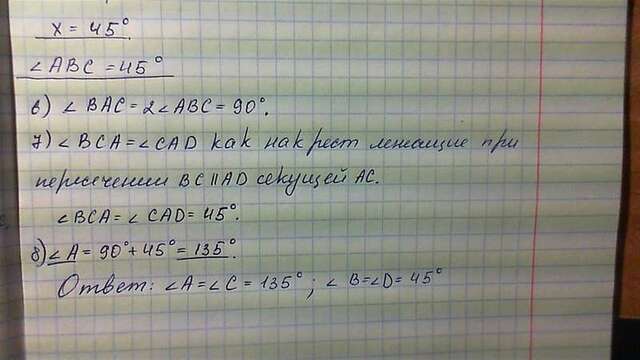 x = 45°.
∠ABC = 45°
в) ∠BAC = 2∠ABC = 90°.
7) ∠BCA = ∠CAD как накрест лежащие при
пересечении BC || AD секущей AC.
∠BCA = ∠CAD = 45°.
8) ∠A = 90° + 45° = 135°.
Ответ: ∠A = ∠C = 135°; ∠B = ∠D = 45°